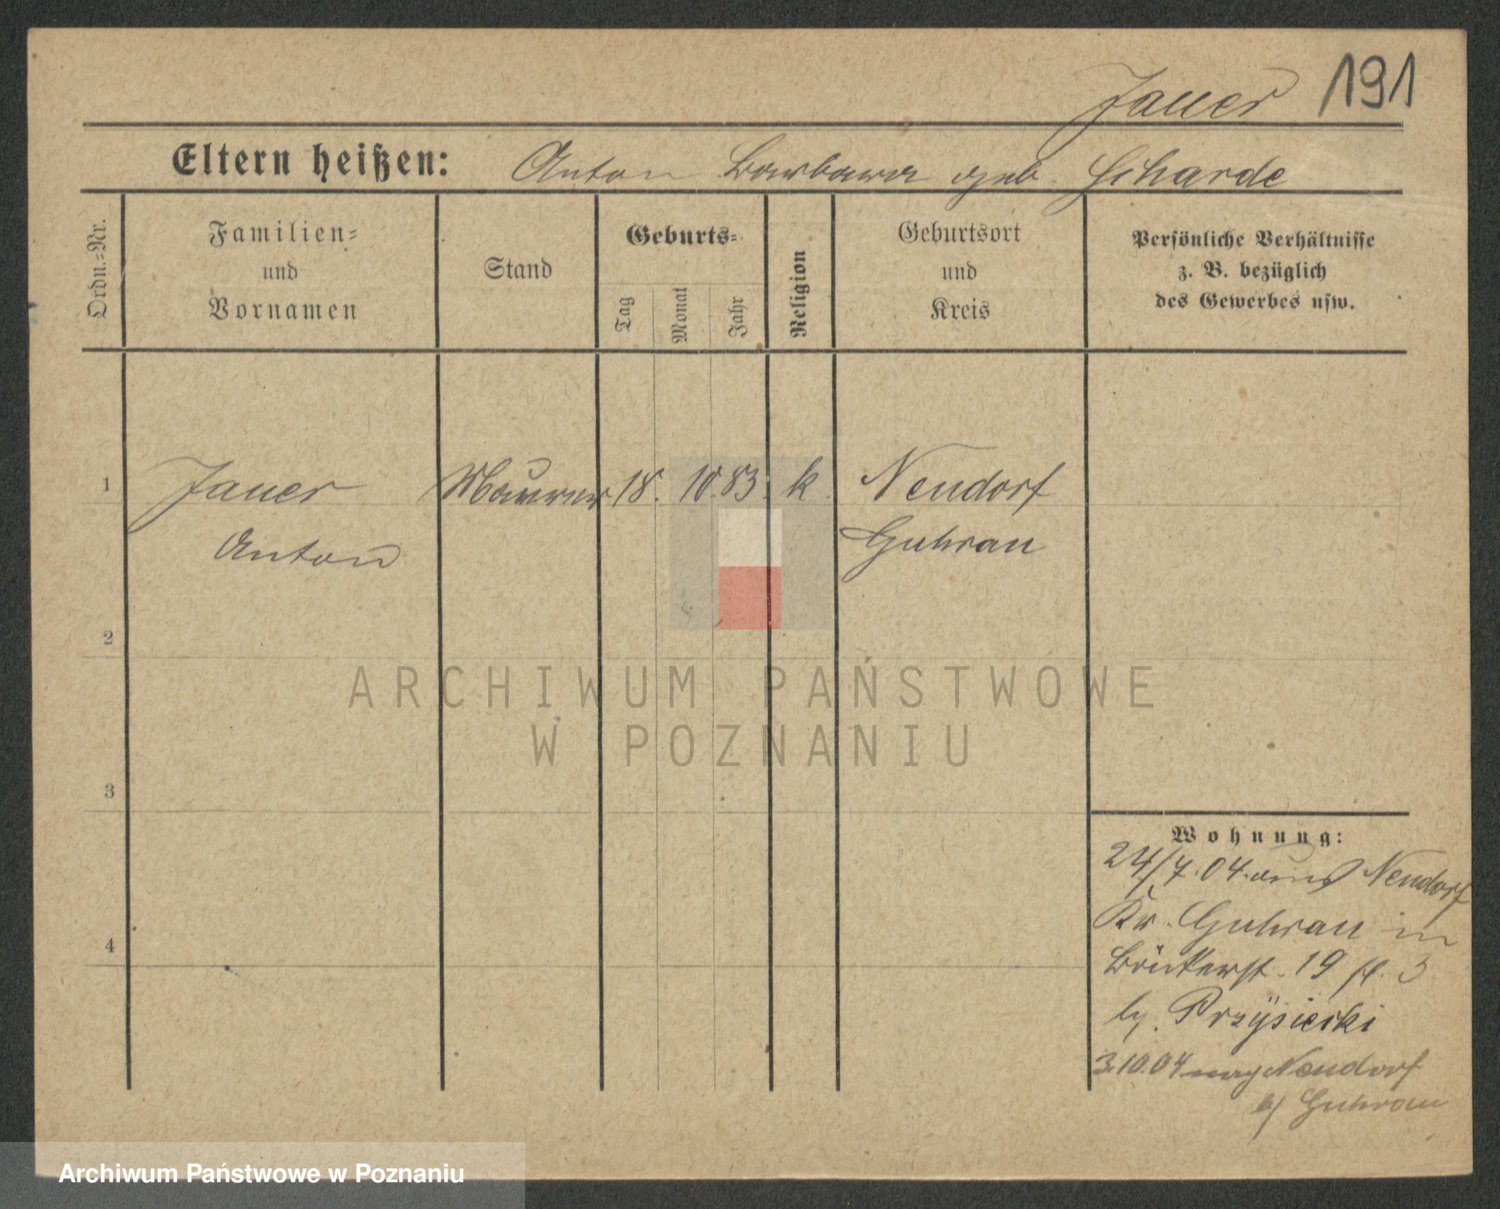 Jauer 191
Eltern heißen: Anton Barbara geb. Scharde
Ordn.-Nr.
Familien-
und
Vornamen
Stand
Geburts-
Tag
Monat
Jahr
Religion
Geburtsort
und
Kreis
Persönliche Verhältnisse
z. B. bezüglich
des Gewerbes usw.
1 Jauer Maurer 18. 10. 83. k. Neudorf
Anton Guhrau
2
ARCHIWUM PAŃSTWOWE
W POZNANIU
3
Wohnung:
24/7.04. aus Neudorf
4
Kr. Guhrau in
19 3
Przysiecki
3.10.04 nach Neudorf
b/ Guhrau
Archiwum Państwowe w Poznaniu